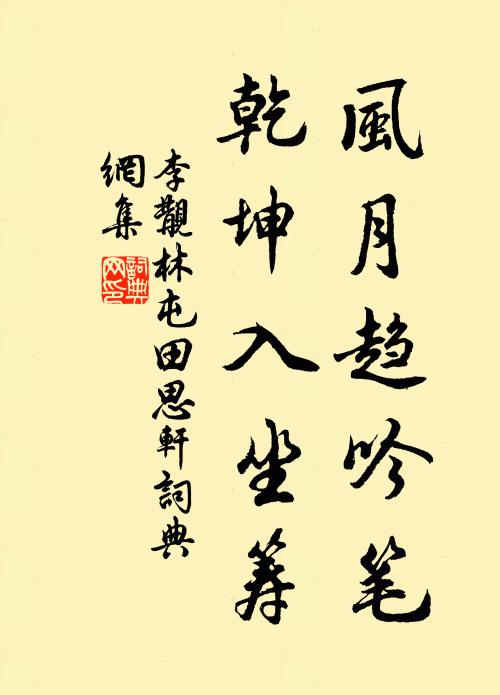 風月趋吟笔
乾坤入坐筹
李觀林屯田思軒詞典
網集
詞典網印